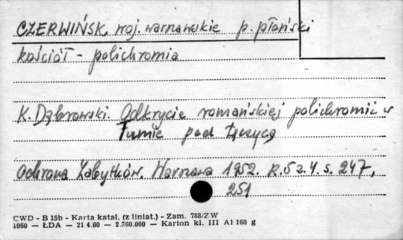 CZERWIŃSK, woj. warszawskie p. płoński
kościół - polichromia
K. Dąbrowski. Odkrycie romańskiej polichromii w
Tumie pod Łęczycą
Ochrona Zabytków. Warszawa 1952. R. 5 z. 4 s. 247,
251
CWD - B 15b - Karta katal. (z liniat.) - Zam. 788/ZW
1060 — ŁDA — 21 4.60 — 2.760.000 — Karton kl. III A1 160 g